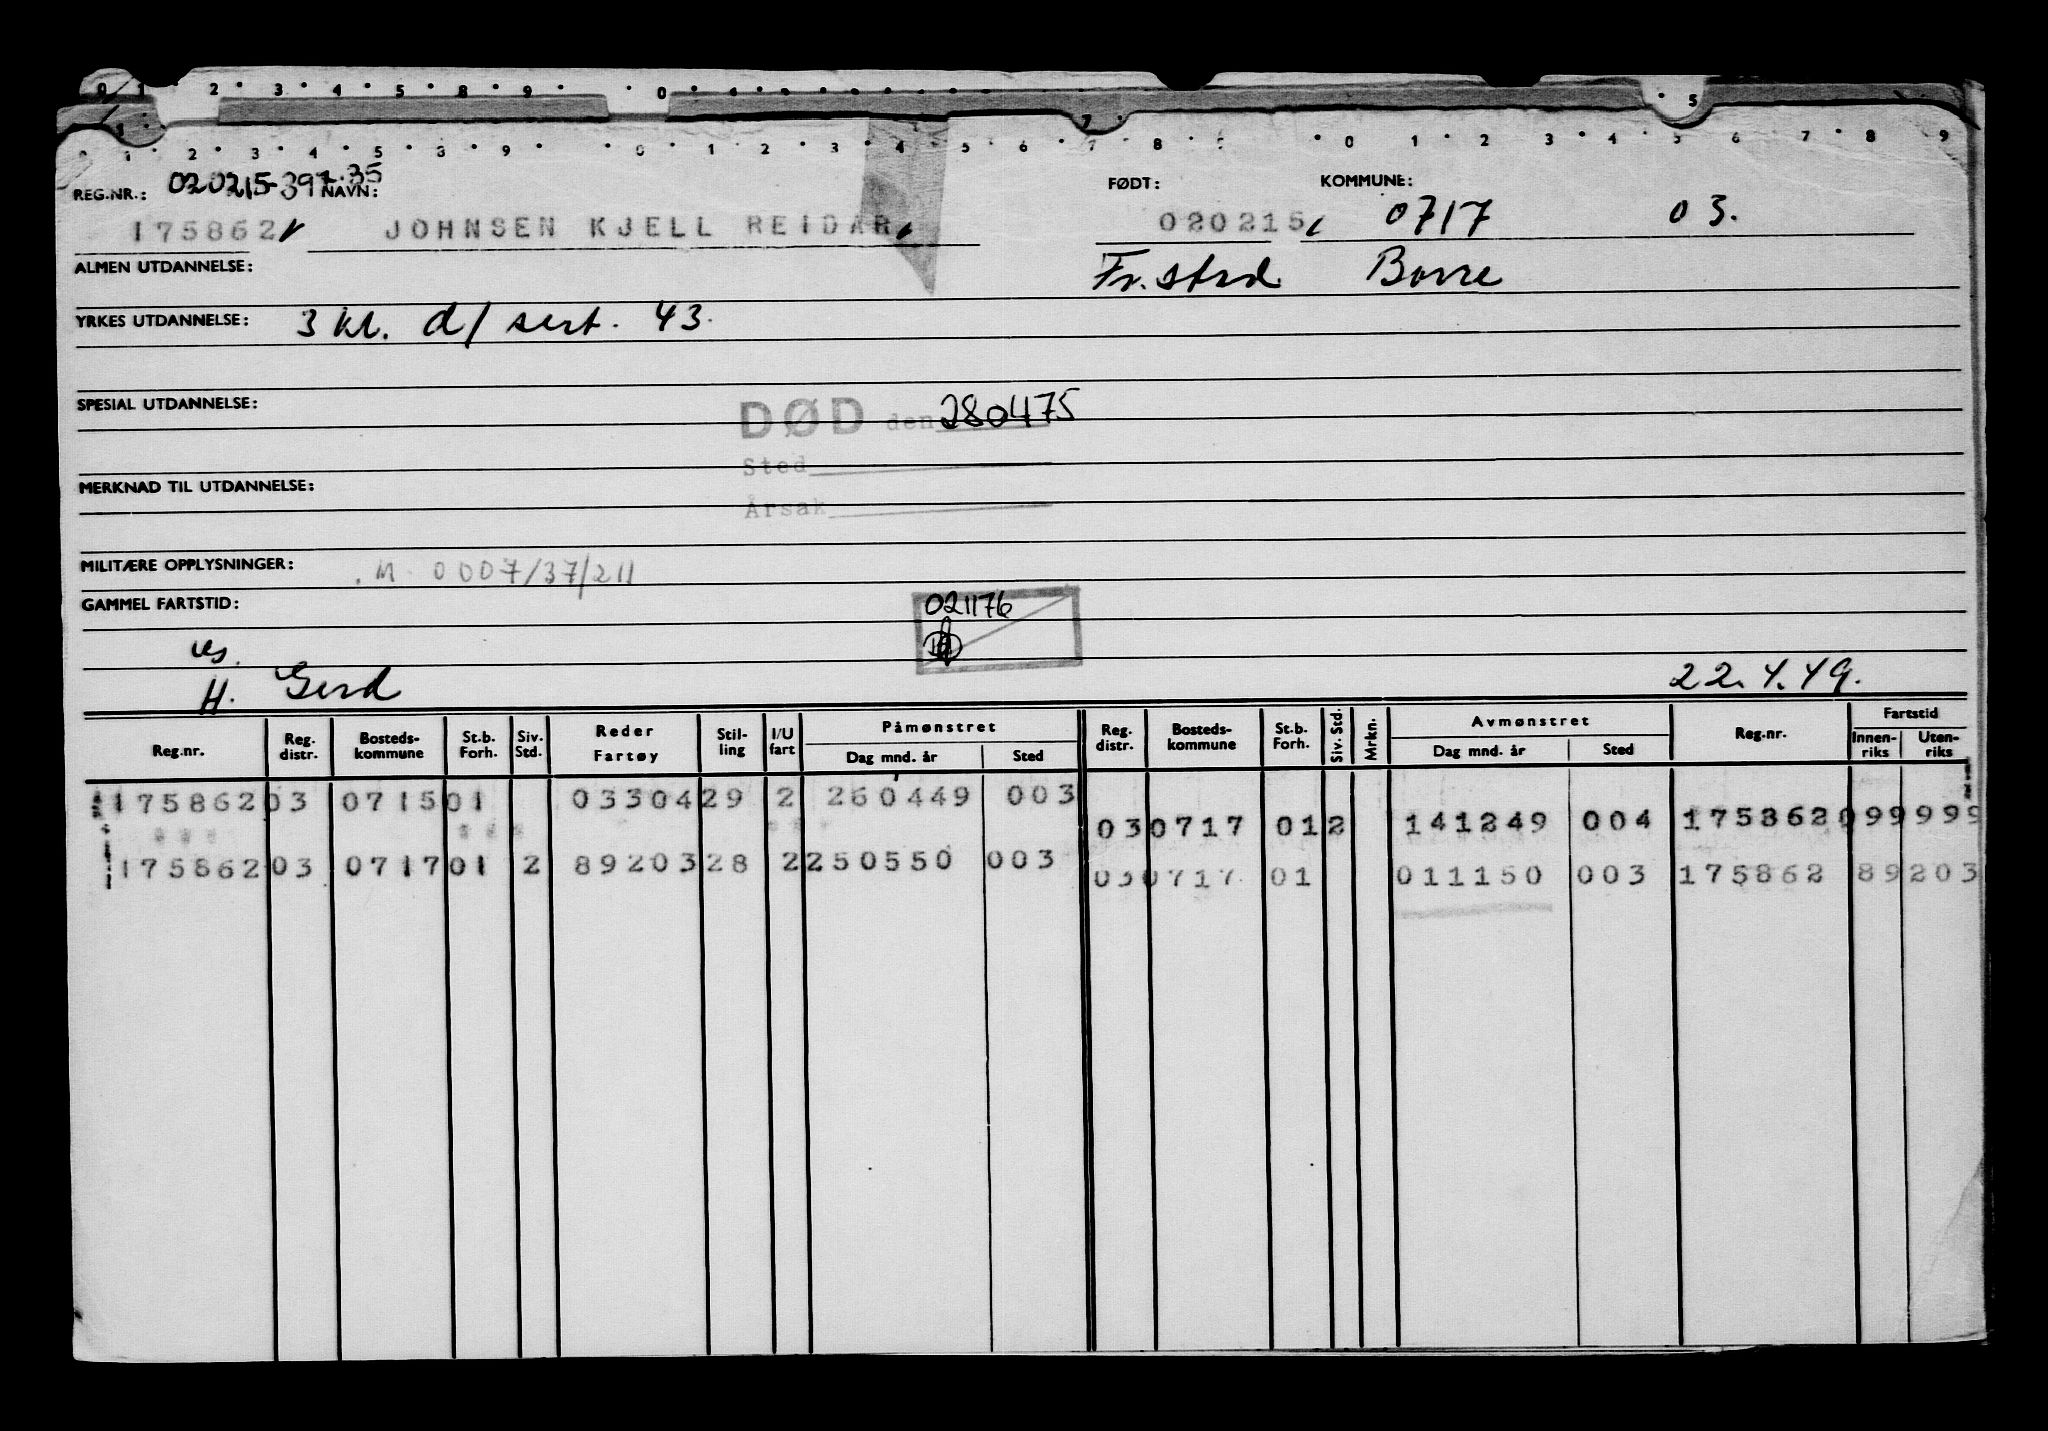 0 1 2 3 4 5 8 9 0
5
1 7
1 2 3 4 5 8 9 0 1 2 3 4 5 6 7 8 9 0 1 2 3 4 5 6 7 8 9
REG.NR.: 020215-397.35 NAVN: FØDT: KOMMUNE:
175862 JOHNSEN KJELL REIDAR 020215 0717 03.
ALMEN UTDANNELSE: Fr.stad Borre
YRKES UTDANNELSE: 3 kl. d/ sert. 43.
SPESIAL UTDANNELSE: DØD den 280475
Sted
MERKNAD TIL UTDANNELSE:
Årsak
MILITÆRE OPPLYSNINGER: M. 0007/37/211
GAMMEL FARTSTID: 021176
us.
H. Gerd 22.4.49.
Reg.nr. Reg. distr. Bosteds-kommune St.b. Forh. Siv. Std. Reder Fartøy Stil-ling I/U fart Påmønstret Dag mnd. år Sted Reg. distr. Bosteds-kommune St.b. Forh. Siv. Std. Mrkn. Avmønstret Dag mnd. år Sted Reg.nr. Fartstid Innen-riks Uten-riks
175862 03 0715 01 03304 29 2 260449 003
03 0717 01 2 141249 004 175862 099999
175862 03 0717 01 2 89203 28 2 250550 003
03 0717 01 011150 003 175862 89203